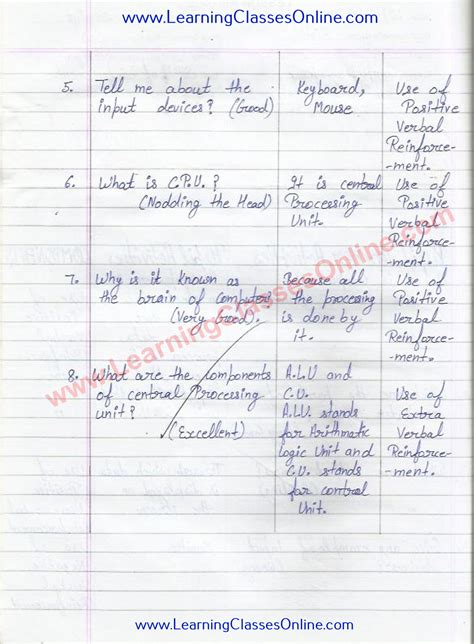 www.LearningClassesOnline.com
5. Tell me about the input devices? (Good) Keyboard, Mouse Use of Positive Verbal Reinforce-ment.
6. What is C.P.U.? (Nodding the Head) It is central Processing Unit. Use of Positive Verbal Reinforce-ment.
7. Why is it known as the brain of computers (Very Good). Because all the processing is done by it. Use of Positive Verbal Reinforce-ment.
8. What are the components of central Processing unit? (Excellent) A.L.U and C.U. A.L.U. stands for Arithmatic logic Unit and C.U. stands for control Unit. Use of Extra Verbal Reinforce-ment.
www.LearningClassesOnline.com
www.LearningClassesOnline.com